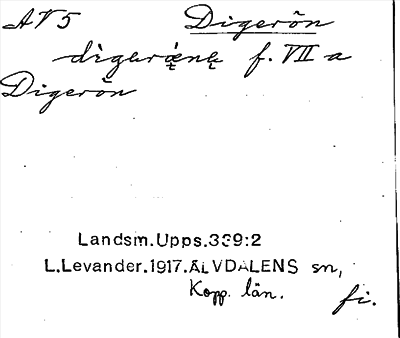 AV5 Digerön
f. VII a
Digerön
Landsm.Upps.339:2
L.Levander.1917.ÄLVDALENS sn,
Kopp. län. fi.